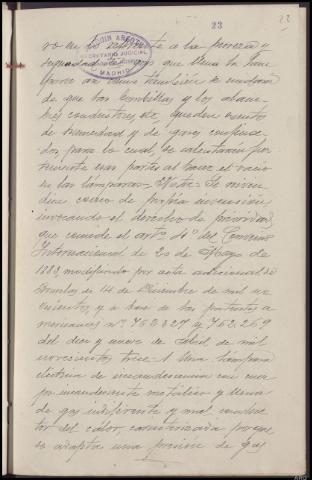 23
23
ro en lo referente a la pureza y
sequedad del gas que llena la lám-
para así como también el cuidado
de que las bombillas y los alam-
bres conductores etc. queden exentos
de humedad y de gases condensa-
dos para lo cual, se calentarán fuer-
temente esas partes al hacer el vacío
en las lámparas.- Nota.- Se reivin-
dica como de propia invención
invocando el derecho de prioridad
que concede el artº 4º del Convenio
Internacional de 20 de Marzo de
1883, modificado por acta adicional de
Bruselas de 14 de Diciembre de mil no-
vecientos, y a base de las patentes a-
mericanas nº 762327 y 762.269
del diez y nueve de Abril de mil
novecientos trece: 1 Una lámpara
eléctrica de incandescencia con cuer-
po incandescente metálico y llena
de gas indiferente y mal conduc-
tor del calor, caracterizada porque
se adapta una presión de gas
SECRETARIO JUDICIAL
MADRID